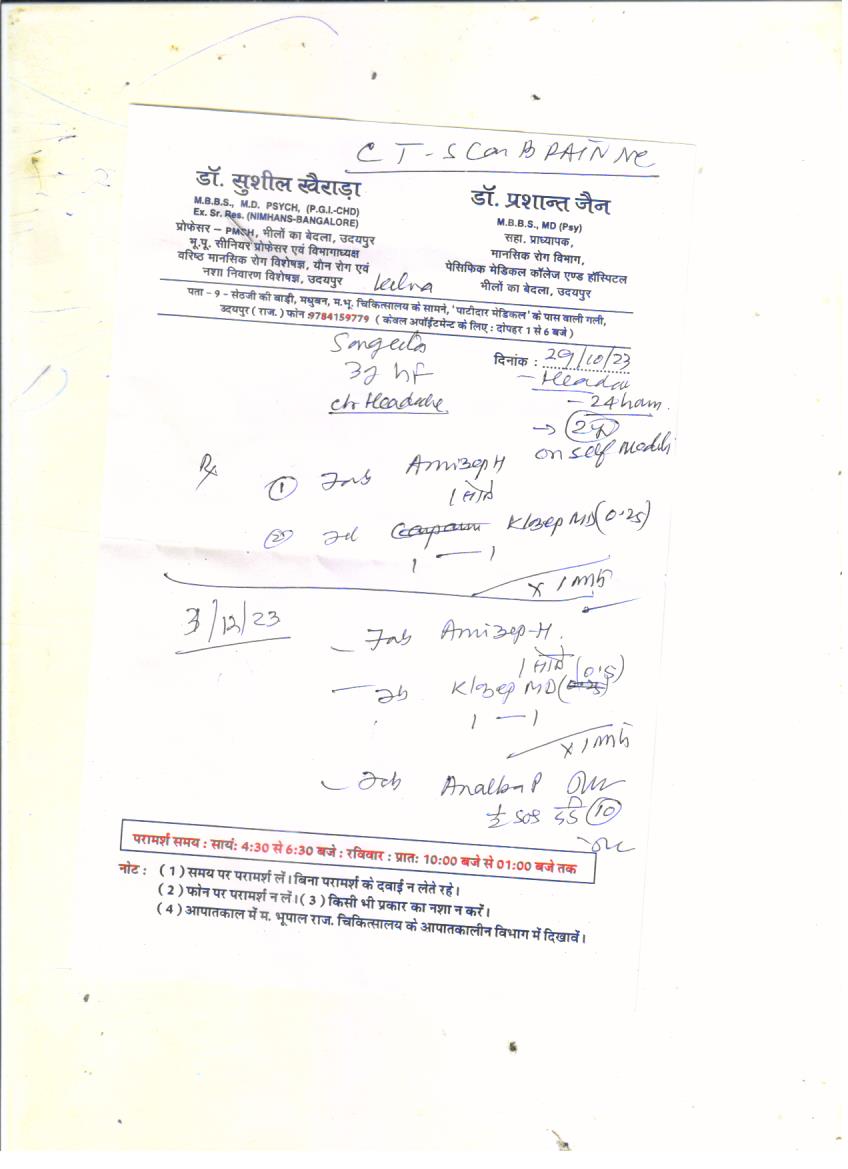 CT-SCan BRAIN NC
डॉ. सुशील खैराड़ा
M.B.B.S., M.D. PSYCH, (P.G.I.-CHD)
Ex. Sr. Res. (NIMHANS-BANGALORE)
प्रोफेसर – PMCH, भीलों का बेदला, उदयपुर
भू.पू. सीनियर प्रोफेसर एवं विभागाध्यक्ष
वरिष्ठ मानसिक रोग विशेषज्ञ, यौन रोग एवं
नशा निवारण विशेषज्ञ, उदयपुर
डॉ. प्रशान्त जैन
M.B.B.S., MD (Psy)
सहा. प्राध्यापक,
मानसिक रोग विभाग,
पेसिफिक मेडिकल कॉलेज एण्ड हॉस्पिटल
भीलों का बेदला, उदयपुर
पता – 9 - सेठजी की बाड़ी, मधुबन, म.भू. चिकित्सालय के सामने, 'पाटीदार मेडिकल' के पास वाली गली,
उदयपुर ( राज. ) फोन :9784159779 ( केवल अपॉईटमेन्ट के लिए : दोपहर 1 से 6 बजे )
दिनांक : 29/10/23
Sangeeta
32
Headache
on self
Rx
① Tab Amizep H
1
② Tab Klozep MD (0.25)
1 — 1
x 1
3/12/23
– Tab Amizep-H
1
– Tab Klozep MD (0.5)
1 — 1
x 1
– Tab
½ SOS 10
परामर्श समय : सायं: 4:30 से 6:30 बजे : रविवार : प्रात: 10:00 बजे से 01:00 बजे तक
नोट : ( 1 ) समय पर परामर्श लें। बिना परामर्श के दवाई न लेते रहे।
( 2 ) फोन पर परामर्श न लें। ( 3 ) किसी भी प्रकार का नशा न करें।
( 4 ) आपातकाल में म. भूपाल राज. चिकित्सालय के आपातकालीन विभाग में दिखावें।